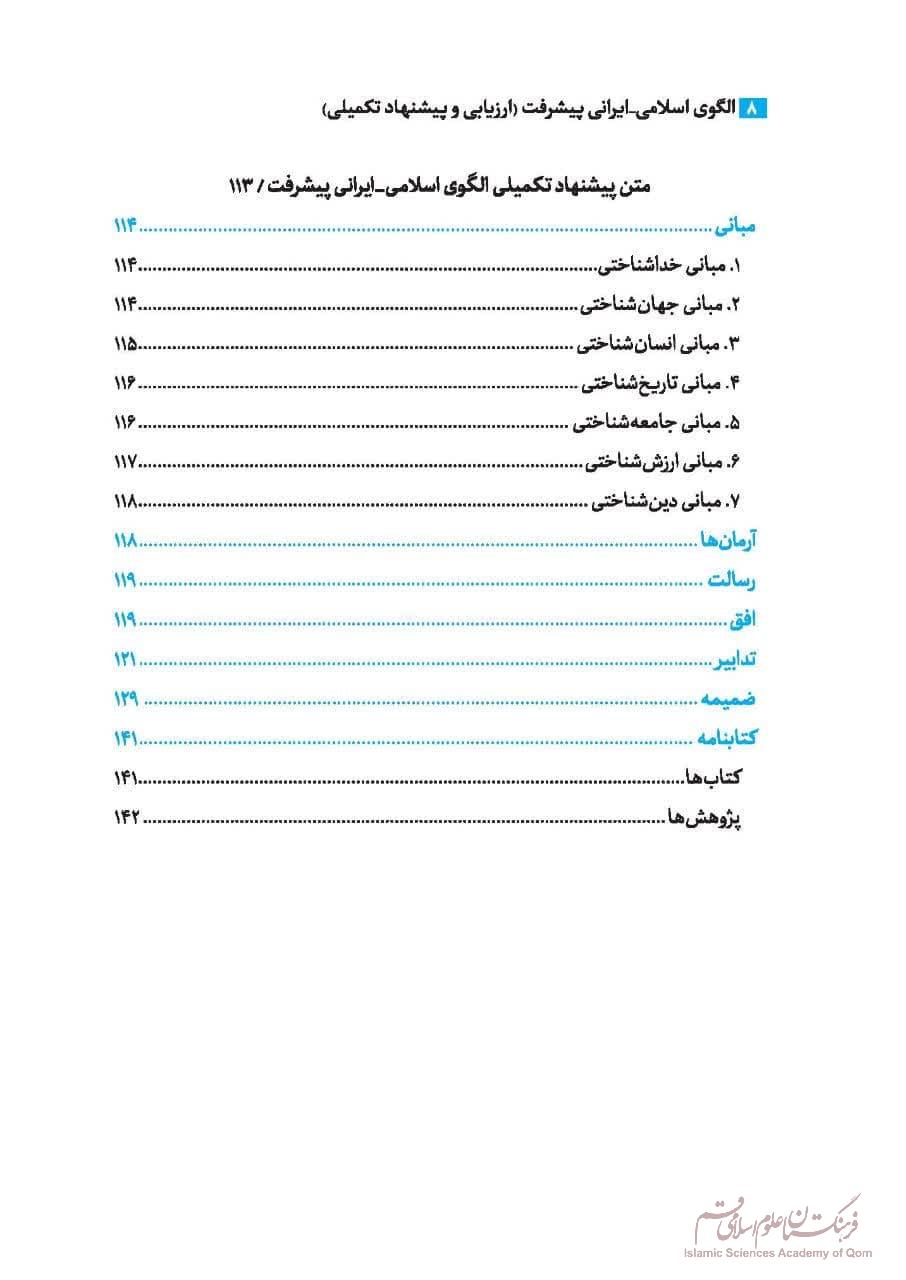 ۸ الگوی اسلامی-ایرانی پیشرفت (ارزیابی و پیشنهاد تکمیلی)
متن پیشنهاد تکمیلی الگوی اسلامی-ایرانی پیشرفت / ۱۱۳
مبانی ........ ۱۱۴
۱. مبانی خداشناختی ........ ۱۱۴
۲. مبانی جهان‌شناختی ........ ۱۱۴
۳. مبانی انسان‌شناختی ........ ۱۱۵
۴. مبانی تاریخ‌شناختی ........ ۱۱۶
۵. مبانی جامعه‌شناختی ........ ۱۱۶
۶. مبانی ارزش‌شناختی ........ ۱۱۷
۷. مبانی دین‌شناختی ........ ۱۱۸
آرمان‌ها ........ ۱۱۸
رسالت ........ ۱۱۹
افق ........ ۱۱۹
تدابیر ........ ۱۲۱
ضمیمه ........ ۱۲۹
کتابنامه ........ ۱۴۱
کتاب‌ها ........ ۱۴۱
پژوهش‌ها ........ ۱۴۲
فرهنگستان علوم اسلامی قم
Islamic Sciences Academy of Qom